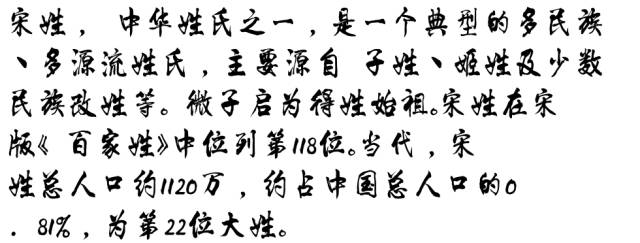 宋姓， 中华姓氏之一，是一个典型的多民族
、多源流姓氏，主要源自 子姓、姬姓及少数
民族改姓等。微子启为得姓始祖。宋姓在宋
版《 百家姓》中位列第118位。当代，宋
姓总人口约1120万，约占中国总人口的0
．81%，为第22位大姓。